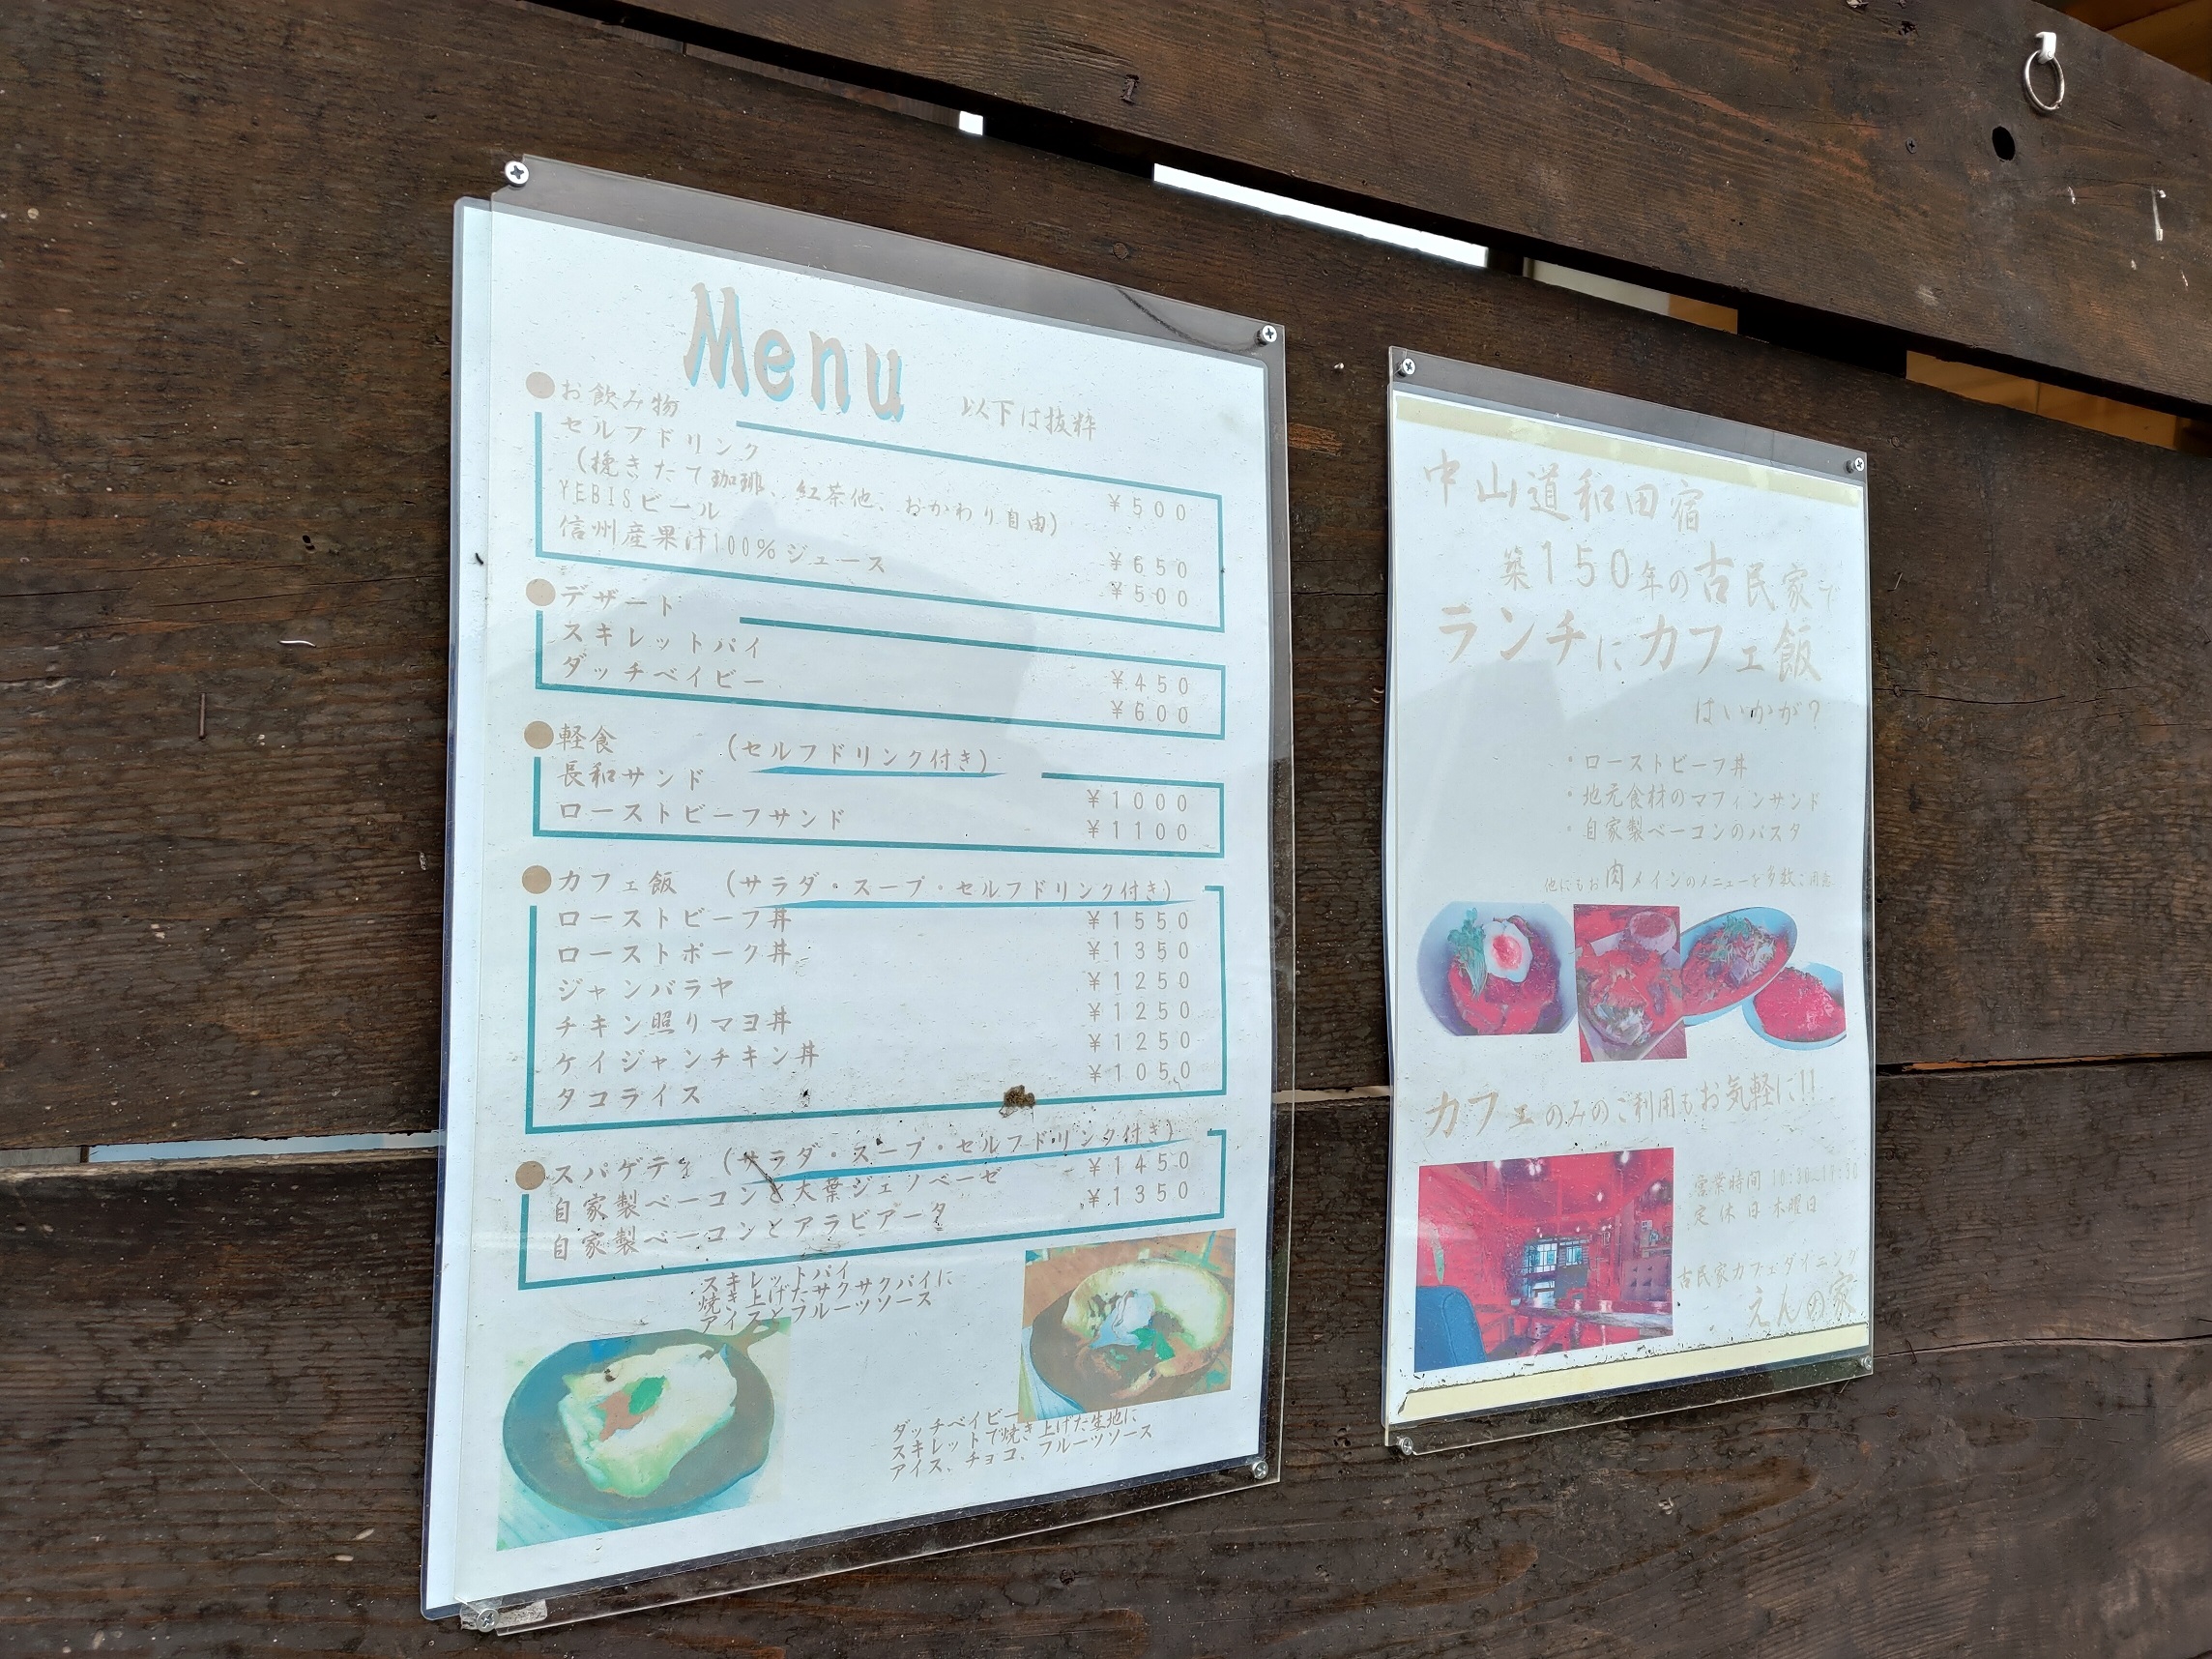 Menu
以下は抜粋
●お飲み物
セルフドリンク ¥500
(挽きたて珈琲、紅茶他、おかわり自由)
YEBISビール ¥650
信州産果汁100%ジュース ¥500
●デザート
スキレットパイ ¥450
ダッチベイビー ¥600
●軽食 (セルフドリンク付き)
長和サンド ¥1000
ローストビーフサンド ¥1100
●カフェ飯 (サラダ・スープ・セルフドリンク付き)
ローストビーフ丼 ¥1550
ローストポーク丼 ¥1350
ジャンバラヤ ¥1250
チキン照りマヨ丼 ¥1250
ケイジャンチキン丼 ¥1250
タコライス ¥1050
●スパゲティ (サラダ・スープ・セルフドリンク付き)
自家製ベーコンと大葉ジェノベーゼ ¥1450
自家製ベーコンとアラビアータ ¥1350
スキレットパイ
焼き上げたサクサクパイに
アイスとフルーツソース
ダッチベイビー
スキレットで焼き上げた生地に
アイス、チョコ、フルーツソース
中山道和田宿
築150年の古民家で
ランチにカフェ飯
はいかが?
・ローストビーフ丼
・地元食材のマフィンサンド
・自家製ベーコンのパスタ
他にもお肉メインのメニューを多数ご用意
カフェのみのご利用もお気軽に!!
営業時間 10:30~
定休日 木曜日
古民家カフェダイニング
えんの家